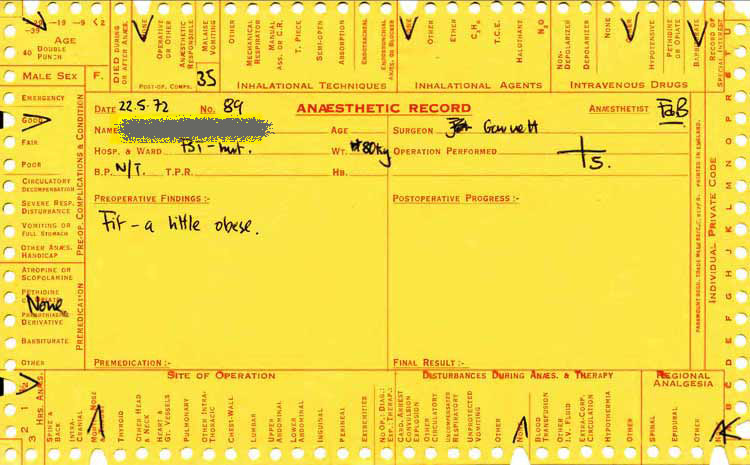 -39 -29 -19 -9 <2
AGE
40 DOUBLE PUNCH
MALE SEX F.
DIED DURING OR AFTER ANÆS.
NONE
OPERATIVE OR OTHER
ANÆSTHETIC RESPONSIBLE
MALAISE VOMITING
OTHER
POST-OP. COMPS.
35
MECHANICAL RESPIRATOR
MANUAL ASS. OR C.R.
T. PIECE
SEMI-OPEN
ABSORPTION
ENDOTRACHEAL
INHALATIONAL TECHNIQUES
NONE
OTHER
ETHER
C₃H₆
T.C.E.
HALOTHANE
N₂O
INHALATIONAL AGENTS
NON-DEPOLARIZER
DEPOLARIZER
NONE
OTHER
HYPOTENSIVE
PETHIDINE OR OPIATE
BARBITURATE
INTRAVENOUS DRUGS
RECORD OF SPECIAL INTEREST
EMERGENCY
GOOD
FAIR
POOR
CIRCULATORY DECOMPENSATION
SEVERE RESP. DISTURBANCE
VOMITING OR FULL STOMACH
OTHER ANÆS. HANDICAP
PRE-OP. COMPLICATIONS & CONDITION
ATROPINE OR SCOPOLAMINE
PETHIDINE
None
DERIVATIVE
BARBITURATE
OTHER
PREMEDICATION
DATE 22.5.72 NO. 89 ANÆSTHETIC RECORD ANÆSTHETIST
NAME AGE SURGEON Garnett
HOSP. & WARD WT. 80kg OPERATION PERFORMED
5.
B.P. N/T. T.P.R. HB.
PREOPERATIVE FINDINGS :- POSTOPERATIVE PROGRESS :-
Fit - a little obese.
PREMEDICATION :- FINAL RESULT :-
INDIVIDUAL PRIVATE CODE
PRINTED IN ENGLAND.
3 2 1 ½
HRS. ANÆS.
SITE OF OPERATION
SPINE & BACK
INTRA-CRANIAL
THYROID
OTHER HEAD & NECK
HEART & GT. VESSELS
PULMONARY
OTHER INTRA-THORACIC
CHEST-WALL
LUMBAR
UPPER ABDOMINAL
LOWER ABDOMINAL
INGUINAL
PERINEAL
EXTREMITIES
DISTURBANCES DURING ANÆS. & THERAPY
CARD. ARREST
CONVULSION
EXPLOSION
OTHER CIRCULATORY
UNCOMPENSATED RESPIRATORY
UNPROTECTED VOMITING
OTHER
NONE
BLOOD TRANSFUSION
OTHER I.V. FLUID
EXTRA-CORP. CIRCULATION
HYPOTHERMIA
OTHER
REGIONAL ANALGESIA
SPINAL
EPIDURAL
OTHER